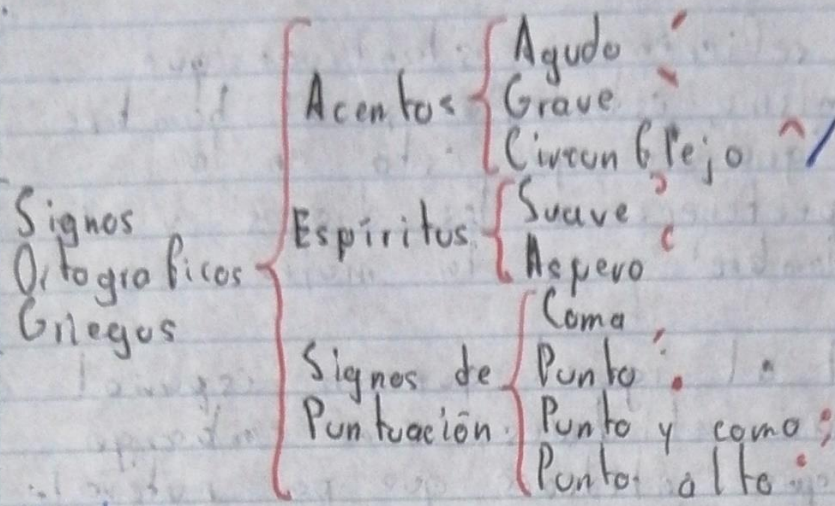 Signos
Ortograficos
Griegos
Acentos
Agudo ´
Grave `
Circunflejo ^ /
Espíritus
Suave ʼ
Aspero ʽ
Signos de
Puntuación
Coma ,
Punto .
Punto y coma ;
Punto alto ·